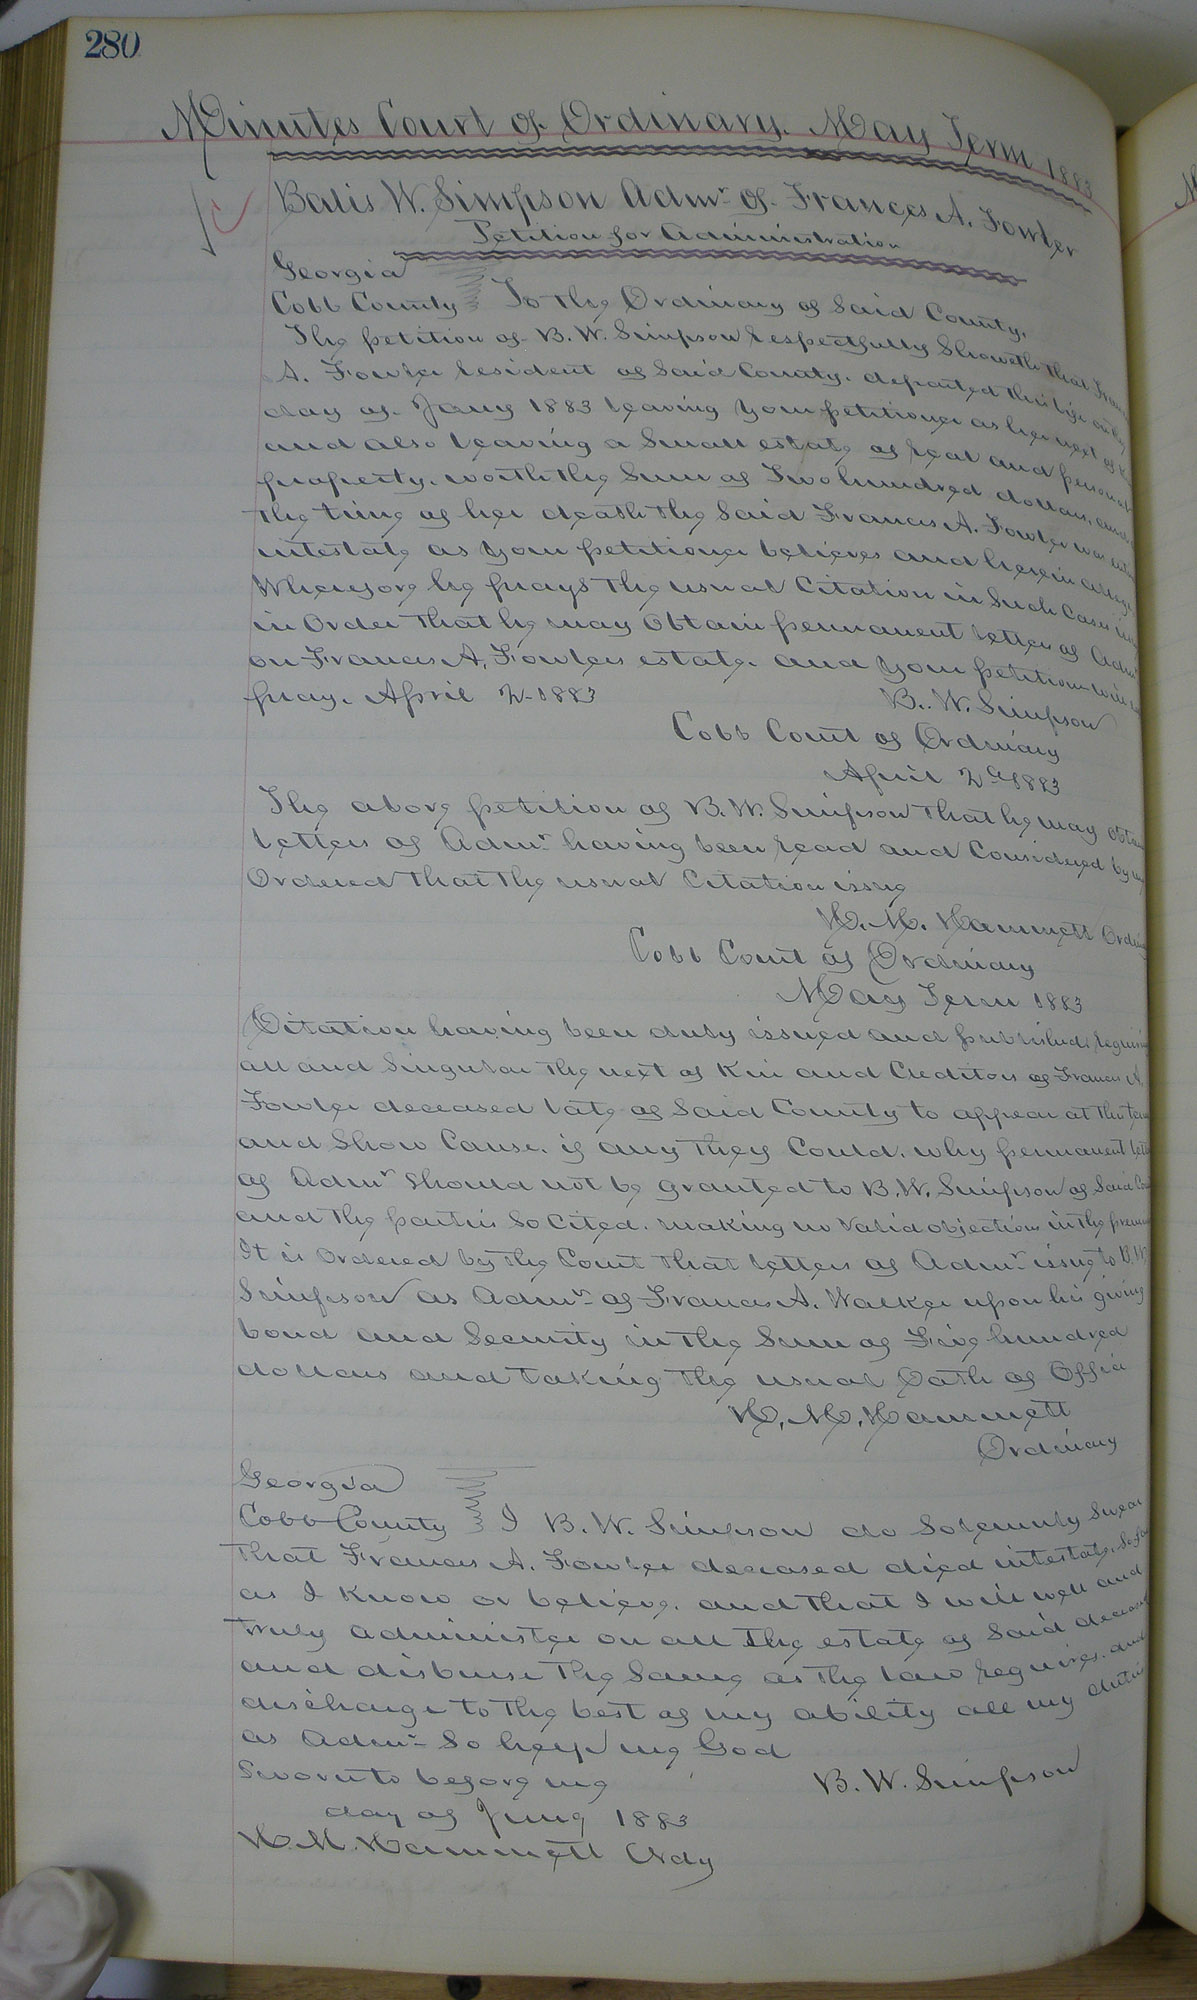 280
Minutes Court of Ordinary. May Term 1883
Balis W. Simpson Admr. of. Frances A. Fowler
Petition for Administration
Georgia
Cobb County To the Ordinary of Said County.
The petition of B. W. Simpson respectfully Showeth that
A. Fowler resident of Said County. departed this life on the
day of Jany 1883 leaving your petitioner as her next of
and also leaving a Small estate of real and personal
property. worth the Sum of Two hundred dollars. and
the time of her death the Said Frances A. Fowler was
intestate as your petitioner believes and herein
Wherefore he prays the usual Citation in Such Cases
in Order that he may Obtain permanent letters of Admr
on Frances A. Fowlers estate. and your petitioner will
pray. April 2-1883 B. W. Simpson
Cobb Court of Ordinary
April 2d 1883
The above petition of B. W. Simpson that he may obtain
letters of Admr. having been read and Considered by me
Ordered that the usual Citation issue
H. M. Hammett
Cobb Court of Ordinary
May Term 1883
Citation having been duly issued and published
all and Singular the next of Kin and Creditors of Frances A.
Fowler deceased late of Said County to appear at this
and Show Cause. if any they Could. why permanent
of Admr should not be granted to B. W. Simpson of Said
and the parties So Cited. making no Valid objections in the
It is Ordered by the Court that letters of Admr. issue to B. W.
Simpson as Admr. of Frances A. Walker upon his giving
bond and Security in the Sum of Five hundred
dollars and taking the usual Oath of Office
H. M. Hammett
Ordinary
Georgia
Cobb County I B. W. Simpson do Solemnly Swear
That Frances A. Fowler deceased died intestate. So far
as I Know or believe. and that I will well and
truly administer on all the estate of Said deceased
and disburse the Same as the law requires. and
discharge to the best of my ability all my duties
as Admr. So help me God
Sworn to before me B. W. Simpson
day of June 1883
H. M. Hammett Ordy